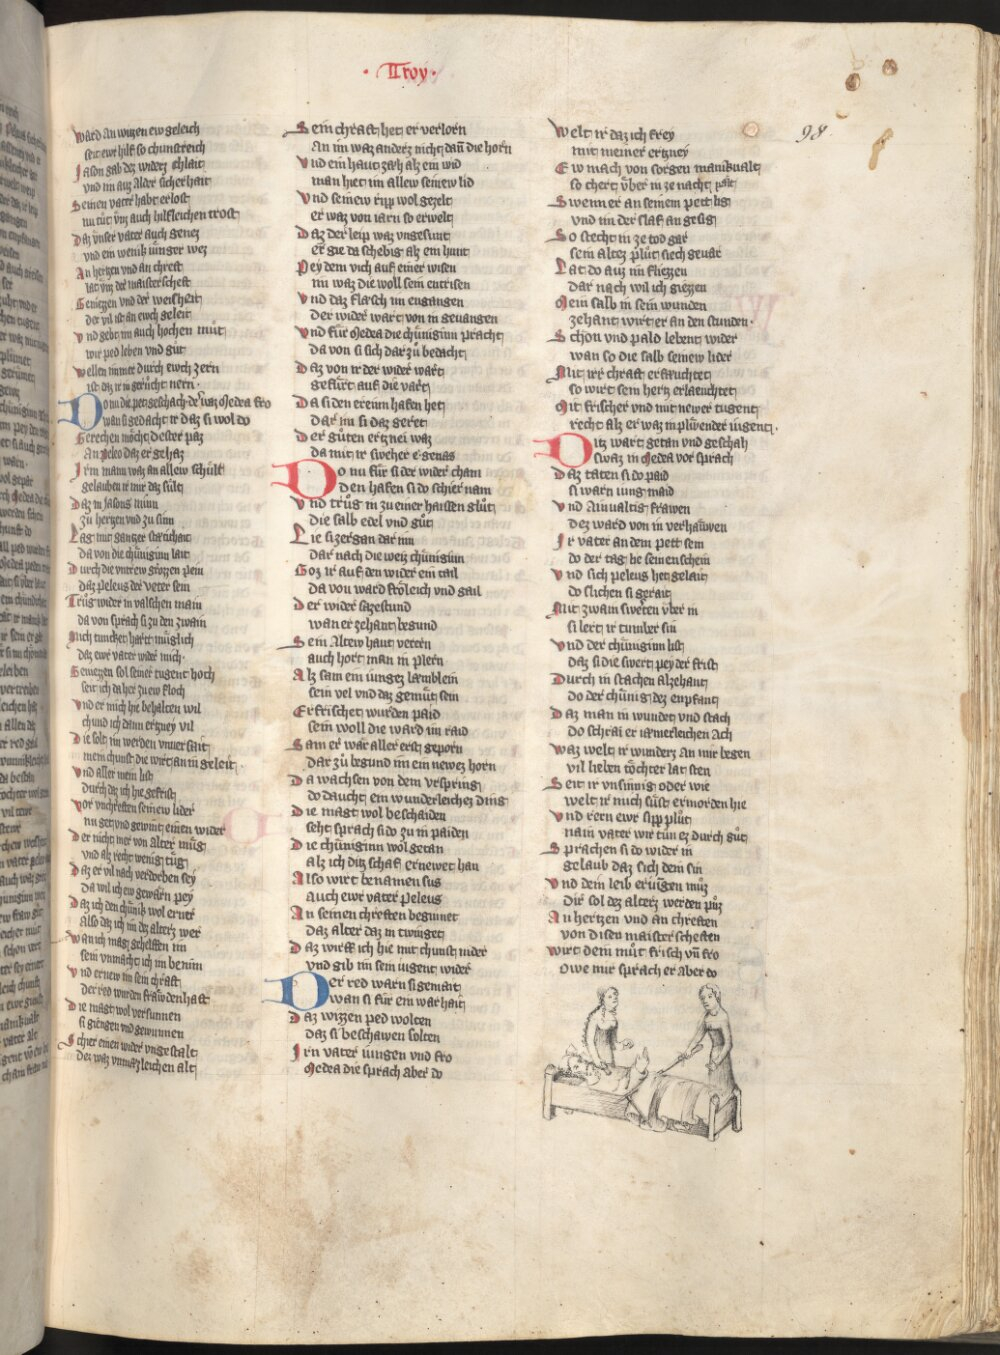 · Troy ·
98
ward an wizen ew geleich
seit ewr hilf so chunstreich
Jason gab dez widerz chlait
vnd im auz Alder sicherhait
Seinen vater habt erlost
nu tut vnz auch hilfleichen trost
Daz vnser vater auch genez
vnd ein wenik iunger wez
An hertzen vnd an chreft
lat vnz der maisterscheft
Geniezzen vnd der weisheit
der vil ist an ewch geleit
Vnd gebt im auch hochen mut
wir ped leben vnd gut
Wellen immer durch ewch zern
ist daz ir in gerucht nern ·
Do nu die pet geschach der waz Medea fro
wan si gedacht ir daz si wol do
Gerechen mocht dester paz
An Peleo daz er gehaz
Irm mann waz an allew schult
gelauben ir mir daz sult
Daz in Jasons minn
zu hertzen vnd zu sinn
Lag mit gantzer staetichait
da von die chuniginn lait
Durch die vntrew grozzen pein
daz Peleus der veter sein
Trug wider in valschen main
da von sprach si zu den zwain
Auch tuncket hart muglich
daz ewr vater wider mich ·
Geniezzen sol seiner tugent hoch
seit ich da her zu ew floch
Vnd er mich hie behalten wil
chund ich dann ertzney vil
Die solt im werden vnuersait
mein chunst die wirt an in geleit
Vnd aller mein list
durch daz ich hie gefrist
Vor vnchreften seinew lider
nu get vnd gewint einen wider
Der nicht mer von Alter mug
vnd alz recht wenig tug
Daz er vil nach verdorben sey
da wil ich ew gewarn pey
Daz ich den chunik wol erner
Also daz ich im dez alterz wer
Wan ich mag gehelffen im
sein vnmacht ich im benim
Vnd ernew im sein chraft
der red wurden frawdenhaft
Die magt wol versunnen
si giengen vnd gewunnen
Schier einen wider vngestalt
der waz vnmazleichen alt
Sein chraft het er verlorn
An im waz anderz nicht dann die horn
Vnd ein haut zaeh alz ein wid
man hiet im allew seinew lid
Vnd seinew ripp wol gezelt
er waz von iarn so erwelt
Daz der leip waz vngesunt
er gie da schebig alz ein hunt
Pey dem vich auf einer wisen
im waz die woll sein entrisen
Vnd daz flaesch im engangen
der wider wart von in geuangen
Vnd fur Medea die chuniginn pracht
da von si sich dar zu bedacht
Daz von ir der wider wart
gefurt auf die vart
Da si den ereinn hafen het
dar inn si daz geret
Der guten ertznei waz
da mit ir sweher e genas
Do nu fur si der wider cham
den hafen si do schier nam
Vnd trug in zu einer haizzen glut
die salb edel vnd gut
Lie si zergan dar inn
dar nach die weiz chuniginn
Goz ir auf den wider ein tail
da von ward froleich vnd gail
Der wider sazestund
wan er zehant begund
Sein Altew haut verern
auch hort man in plern
Alz sam ein iungez laemblein
sein vel vnd daz gemut sein
Erfrischet wurden paid
sein woll die ward im raid
Sam er waer aller erst geporn
dar zu begund im ein newez horn
Da wachsen von dem vrspring
do daucht ein wunderleichez ding
Die magt wol beschaiden
seht sprach si do zu in paiden
Die chuniginn wol getan
alz ich ditz schaf ernewet han
Also wirt benamen sus
Auch ewr vater Peleus
An seinen chreften beginnet
daz alter daz in twinget
Daz wirff ich hie mit chunst nider
vnd gib im sein iugent wider
Der red warn si gemait
wan si fur ein warhait
Daz wizzen ped wolten
daz si beschawen solten
Irn vater iungen vnd fro
Medea die sprach aber do
Welt ir daz ich frey
mit meiner ertzney
Ew mach von sorgen manikualt
so chert vber in ze nacht pait
Swenn er an seinem pett lig
vnd im der slaf an gesig
So stecht in ze tod gar
sein altez plut siech geuar
Lat do auz im fliezzen
dar nach wil ich giezzen
Mein salb in sein wunden
zehant wirt er an den stunden ·
Schon vnd pald lebent wider
wan so die salb seinew lider
Mit irr chraft erfeuchtet
so wirt sein hertz erlaeuchtet
Mit frischer vnd mit newer tugent
recht alz er waz in pluender iugent ·
Ditz wart getan vnd geschah
swaz in Medea vor sprach
Daz taten si do paid
si warn iung maid
Vnd Ainualtig frawen
dez ward von in verhawen
Ir vater an dem pett sein
do der tag lie seinen schein
Vnd sich Peleus het gelait
do slichen si gerait
Mit zwain swerten vber in
si lert ir tumber sin
Vnd der chuniginn list
daz si die swert pey der frist
Durch in stachen alzehant
do der chunig dez enpfant
Daz man in wundet vnd stach
do schrai er iaemerleichen Ach
Waz welt ir wunderz an mir begen
vil lieben tochter lat sten
Seit ir vnsinnig oder wie
welt ir mich sust ermorden hie
Vnd rern ewr sipp plut
nain vater wir tun ez durch gut
Sprachen si do wider in
gelaub daz sich dein sin
Vnd dein leib eriungen muz
dir sol dez alterz werden puz
An hertzen vnd an chreften
von disen maisterscheften
Wirt dein mut frisch vnd fro
Owe mir sprach er aber do